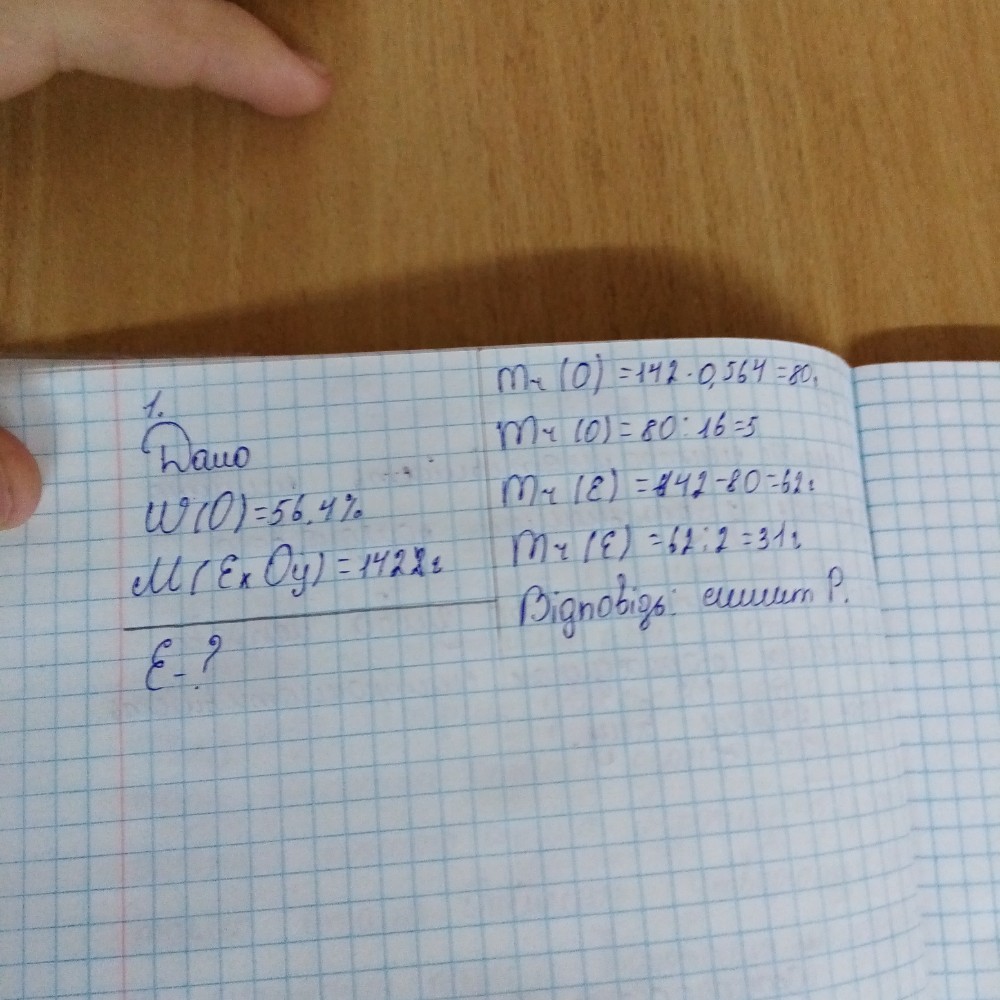 1.
Дано
W(O)=56.4%
M(ExOy)=1422г
E-?
Mr(O)=142·0,564=80г
Mr(O)=80:16=5
Mr(E)=142-80=62г
Mr(E)=62:2=31г
Відповідь: елемент P.